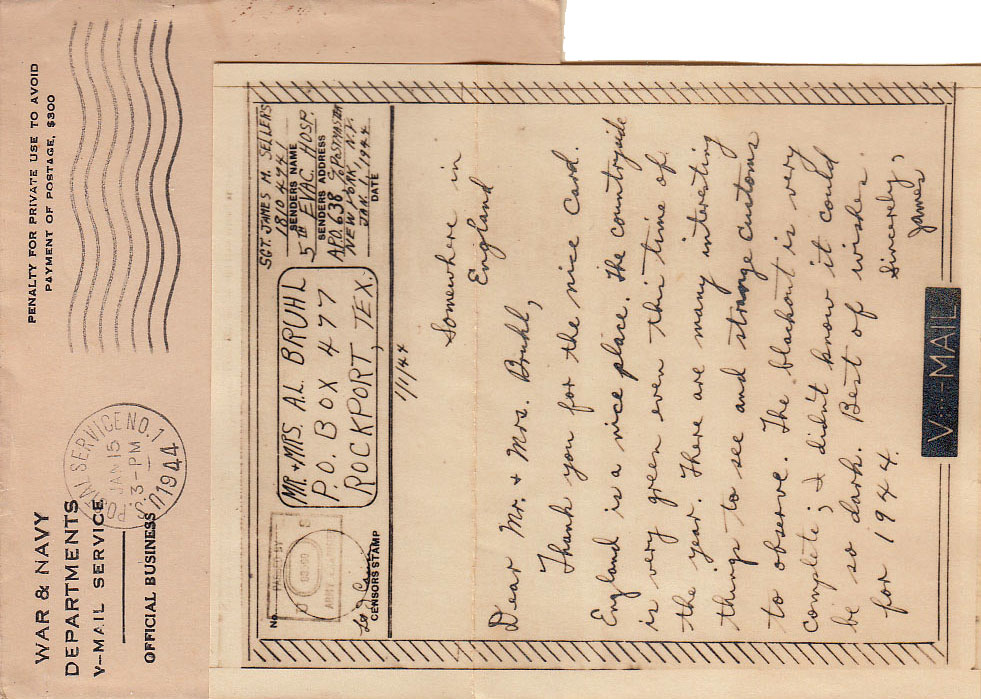 WAR & NAVY
DEPARTMENTS
V-MAIL SERVICE
OFFICIAL BUSINESS
PENALTY FOR PRIVATE USE TO AVOID
PAYMENT OF POSTAGE, $300
SERVICE NO. 1
JAN 15
3-PM
1944
No.
PASSED BY
ARMY EXAMINER
CENSORS STAMP
MR. + MRS. A.L. BRUHL
P.O. BOX 477
ROCKPORT, TEX.
SGT. JAMES M. SELLERS
1810474
SENDERS NAME
5TH EVAC. HOSP.
SENDERS ADDRESS
APO. 638 c/o POSTMASTER
NEW YORK, N.Y.
JAN. 1, 1944
DATE
1/1/44
Somewhere in
England
Dear Mr. + Mrs. Bruhl,
Thank you for the nice card.
England is a nice place. The countryside
is very green even this time of
the year. There are many interesting
things to see and strange customs
to observe. The blackout is very
complete; I didn't know it could
be so dark. Best of wishes
for 1944.
Sincerely,
James
V-MAIL